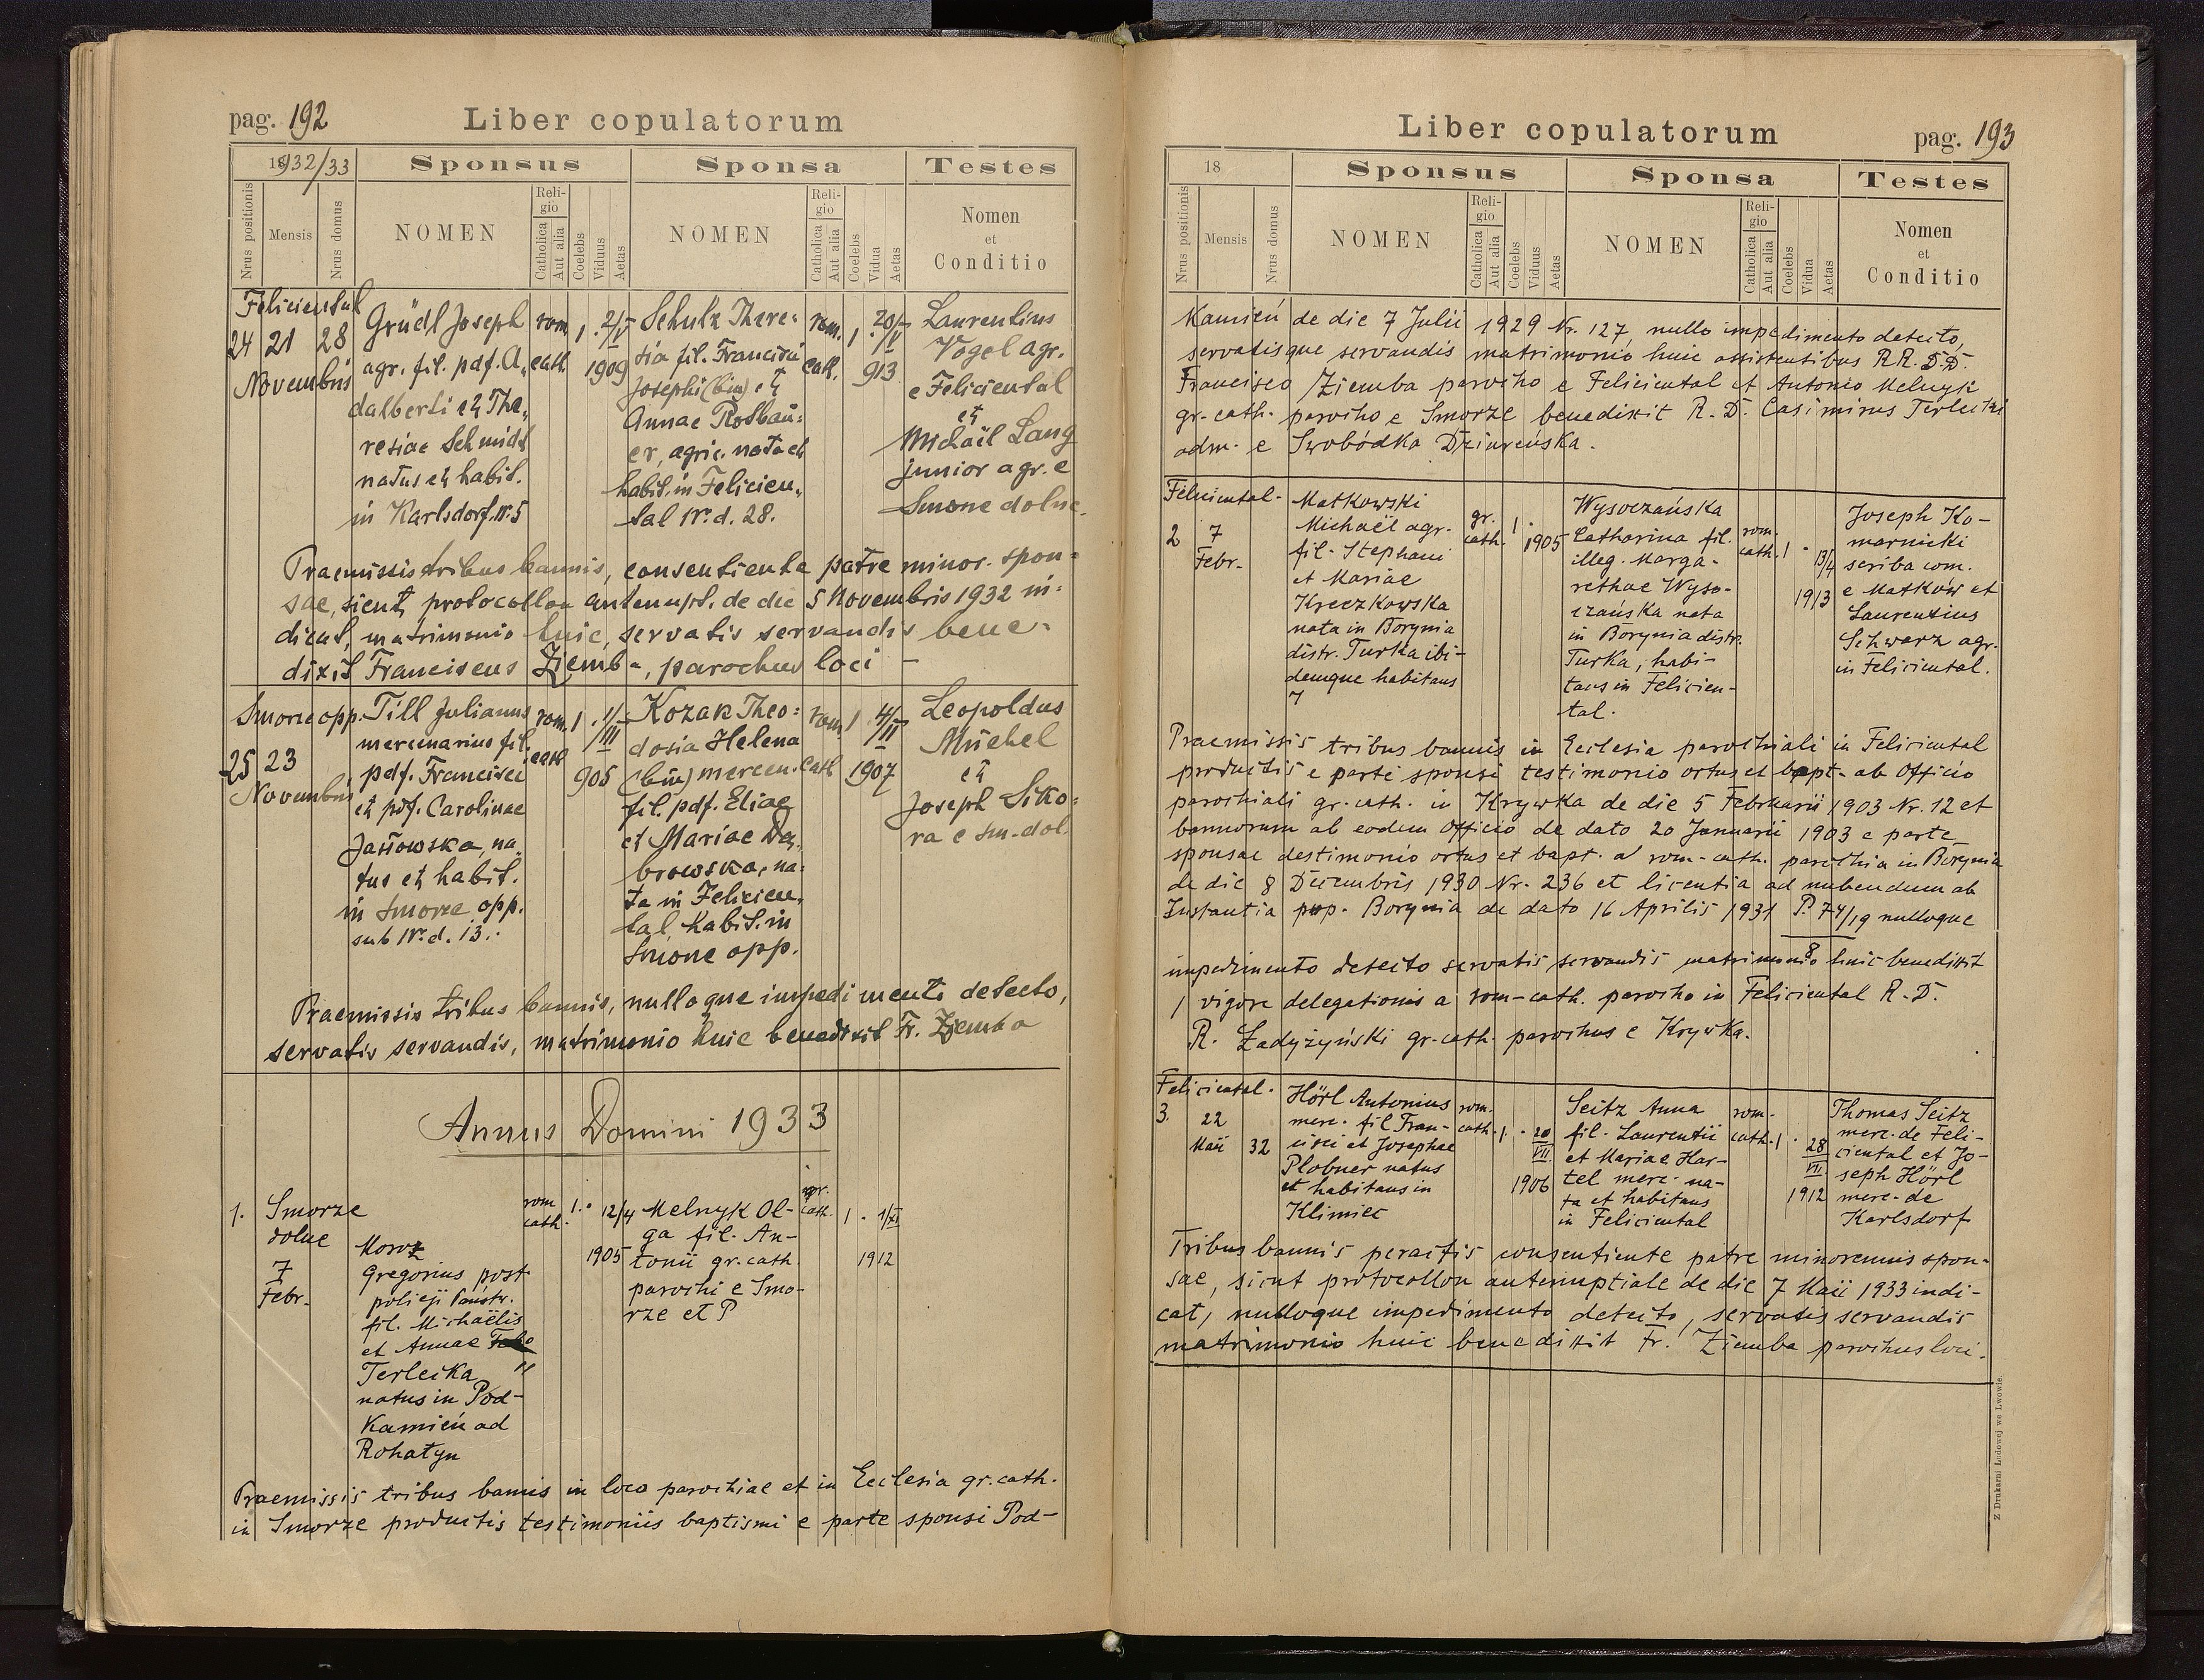 pag. 192
Liber copulatorum
1932/33
Sponsus
Sponsa
Testes
Nrus positionis
Mensis
Nrus domus
NOMEN
Religio
Catholica
Aut alia
Coelebs
Viduus
Aetas
NOMEN
Religio
Catholica
Aut alia
Coelebs
Vidua
Aetas
Nomen
et
Conditio
Feliciental
24 21 28
Novembris
Grüdl Joseph
agr. fil. pdf. A„
dalberti et The„
resiae Schmidt
natus et habit.
in Karlsdorf. Nr. 5
rom.
cath.
1
2/V
1909
Schulz There:
sia fil. Francisci
Josephi (bin) et
Annae Rosbau:
er, agric. nata et
habit. in Felicien„
tal Nr. d. 28.
rom.
cath.
1
20/IV
913
Laurentius
Vogel agr.
e Feliciental
et
Michaël Lang
junior agr. e
Smorze dolne.
Praemissis tribus bannis, consentiente patre minor. spon=
sae, sicut protocollon antenupt. de die 5 Novembris 1932 in:
dicat, matrimonio huic, servatis servandis bene-
dixit Franciscus Ziemba, parochus loci -
Smorze opp.
25 23
Novembris
Till Julianus
mercenarius fil.
pdf. Francisci
et pdf. Carolinae
Jasłowska, na„
tus et habit.
in Smorze opp.
sub Nr. d. 13.
rom.
cath
1
1/III
905
Kozak Theo:
dosia Helena
(bin) mercen.
fil. pdf. Eliae
et Mariae Dą„
browska, na:
ta in Felicien„
tal habit. in
Smorze opp.
rom
cath
1
4/II
1907
Leopoldus
Müchel
et
Joseph Siko:
ra e Sm. dol.
Praemissis tribus bannis, nulloque impedimento detecto,
servatis servandis, matrimonio huic benedixit Fr. Ziemba
Annus Domini 1933
1. Smorze
dolne
7
Febr.
Moroz
Gregorius post.
policji Państw.
fil. Michaëlis
et Annae
Terlecka "
natus in Pod-
Kamień ad
Rohatyn
rom
cath.
1.
12/4
1905
Melnyk Ol-
ga fil. An-
tonii gr. cath.
parochi e Smo-
rze et P
gr.
cath.
1 . 1/XI
1912
Praemissis tribus bannis in loco parochiae et in Ecclesia gr. cath.
in Smorze productis testimoniis baptismi e parte sponsi Pod-
Liber copulatorum
pag. 193
18
Sponsus
Sponsa
Testes
Nrus positionis
Mensis
Nrus domus
NOMEN
Religio
Catholica
Aut alia
Coelebs
Viduus
Aetas
NOMEN
Religio
Catholica
Aut alia
Coelebs
Vidua
Aetas
Nomen
et
Conditio
Kamień de die 7 Julii 1929 Nr. 127, nullo impedimento detecto,
servatisque servandis matrimonio huic assistentibus RR. DD.
Francisco Ziemba parocho e Feliciental et Antonio Melnyk
gr. cath. parocho e Smorze benedixit R. D. Casimirus Terlecki
adm. e Swobódka Dżiureńska.
Feliciental.
2 7
Febr.
Matkowski
Michaël agr.
fil. Stephani
et Mariae
Kreczkowska
nata in Borynia
distr. Turka ibi-
demque habitans
7
gr.
cath.
1 .
1905
Wysoczańska
Catharina fil.
illeg. Marga-
rethae Wyso-
czańska nata
in Borynia distr.
Turka, habi-
tans in Felicien-
tal.
rom.
cath.
1 .
13/4
1913
Joseph Ko-
marnicki
scriba com.
e Matków et
Laurentius
Schwarz agr.
in Feliciental.
Praemissis tribus bannis in Ecclesia parochiali in Feliciental
productis e parte sponsi testimonio ortus et bapt. ab Officio
parochiali gr. cath. in Krywka de die 5 Februarii 1903 Nr. 12 et
bannorum ab eodem Officio de dato 20 Januarii 1903 e parte
sponsae testimonio ortus et bapt. a rom-cath. parochia in Borynia
de die 8 Decembris 1930 Nr. 236 et licentia ad nubendum ab
Instantia pup. Borynia de dato 16 Aprilis 1931 P. 74/19 nulloque
8
impedimento detecto servatis servandis matrimonio huic benedixit
/ vigore delegationis a rom-cath. parocho in Feliciental R. D.
R. Ładyżyński gr. cath. parochus e Krywka.
Feliciental.
3. 22
Maii 32
Hörl Antonius
merc. fil. Fran-
cisci et Josephae
Plobner natus
et habitans in
Klimiec
rom.
cath.
1 . 20
VII.
1906
Seitz Anna
fil. Laurentii
et Mariae Har-
tel merc. na-
ta et habitans
in Feliciental
rom.
cath.
1 . 28
VII.
1912
Thomas Seitz
merc. de Feli-
ciental et Jo-
seph Hörl
merc. de
Karlsdorf
Tribus bannis peractis consentiente patre minorennis spon-
sae, sicut protocollon antenuptiale de die 7 Maii 1933 indi-
cat, nulloque impedimento detecto, servatis servandis
matrimonio huic benedixit Fr. Ziemba parochus loci.
Z Drukarni Ludowej we Lwowie.